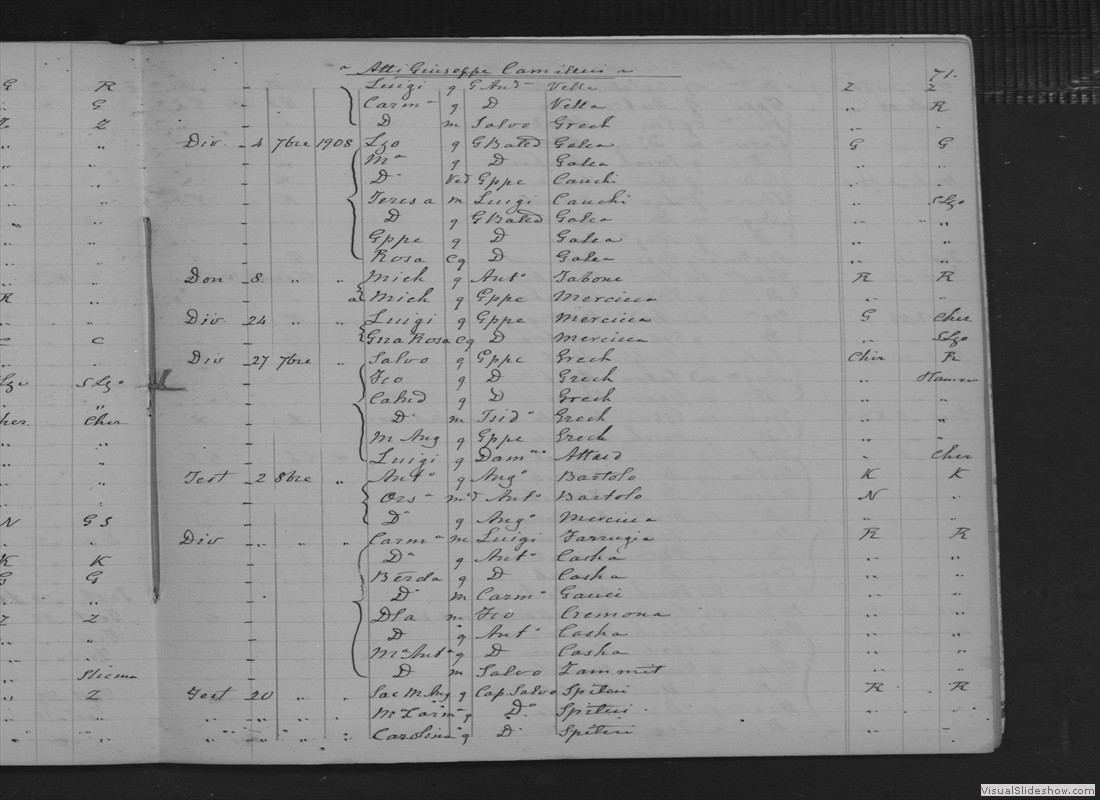 Atti Giuseppe Camilleri
71.
Luigi g G And° Vella Z Z
G R Carm° g D Vella „ R
G D m Salvo Grech „ „
Z Z Div. 4 7bre 1908 Lzo g G Batta Galea G G
Ma g D Galea „ „
D Ved Gppe Cauchi „ „
Teresa m Luigi Cauchi „ S Lzo
D g G Batta Galea „ „
Gppe g D Galea „ „
Rosa cg D Galea „ „
Don 8 „ „ Mich g Ant° Tabone R R
R a Mich g Gppe Mercieca „ „
Div 24 „ „ Luigi g Gppe Mercieca G Cher
C Gna Rosa cg D Mercieca „ S Lzo
Div 27 7bre „ Salvo g Gppe Grech Cher R
S Lzo Fco g D Grech „ Hamrun
Calcid g D Grech „ „
Cher Cher D m Isid° Grech „ „
M Ang g Gppe Grech „ „
Luigi g Dam Attard „ Cher
Test 2 8bre „ Ant° g Ang° Bartolo K K
Ors° m Ant° Bartolo N „
N G S D g Ang° Mercieca „ „
Div „ „ „ Carm° m Luigi Farrugia R R
K K D g Ant° Casha „ „
G G Berda g D Casha „ „
D m Carm° Gauci „ „
Z Z Dla m Fco Cremona „ „
D g Ant° Casha „ „
Ma Anta g D Casha „ „
Sliema D m Salvo Zammit „ „
Z Test 20 „ „ Sac M Ang g Cap Salvo Spiteri R R
„ „ „ „ Ma Carm g D° Spiteri „ „
„ „ „ „ Carolina g D Spiteri „ „
VisualSlideshow.com